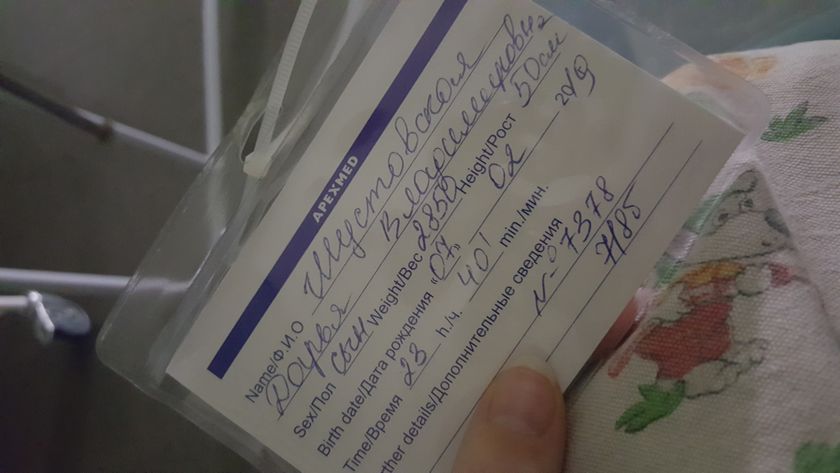 APEXMED
Name/Ф.И.О Шустовская
Дарья Владимировна
Sex/Пол сын Weight/Вес 2850 Height/Рост 50см
Birth date/Дата рождения "07" 02 2019
Time/Время 23 h./ч. 40 min./мин.
rther details/Дополнительные сведения
N-º 7378
7185